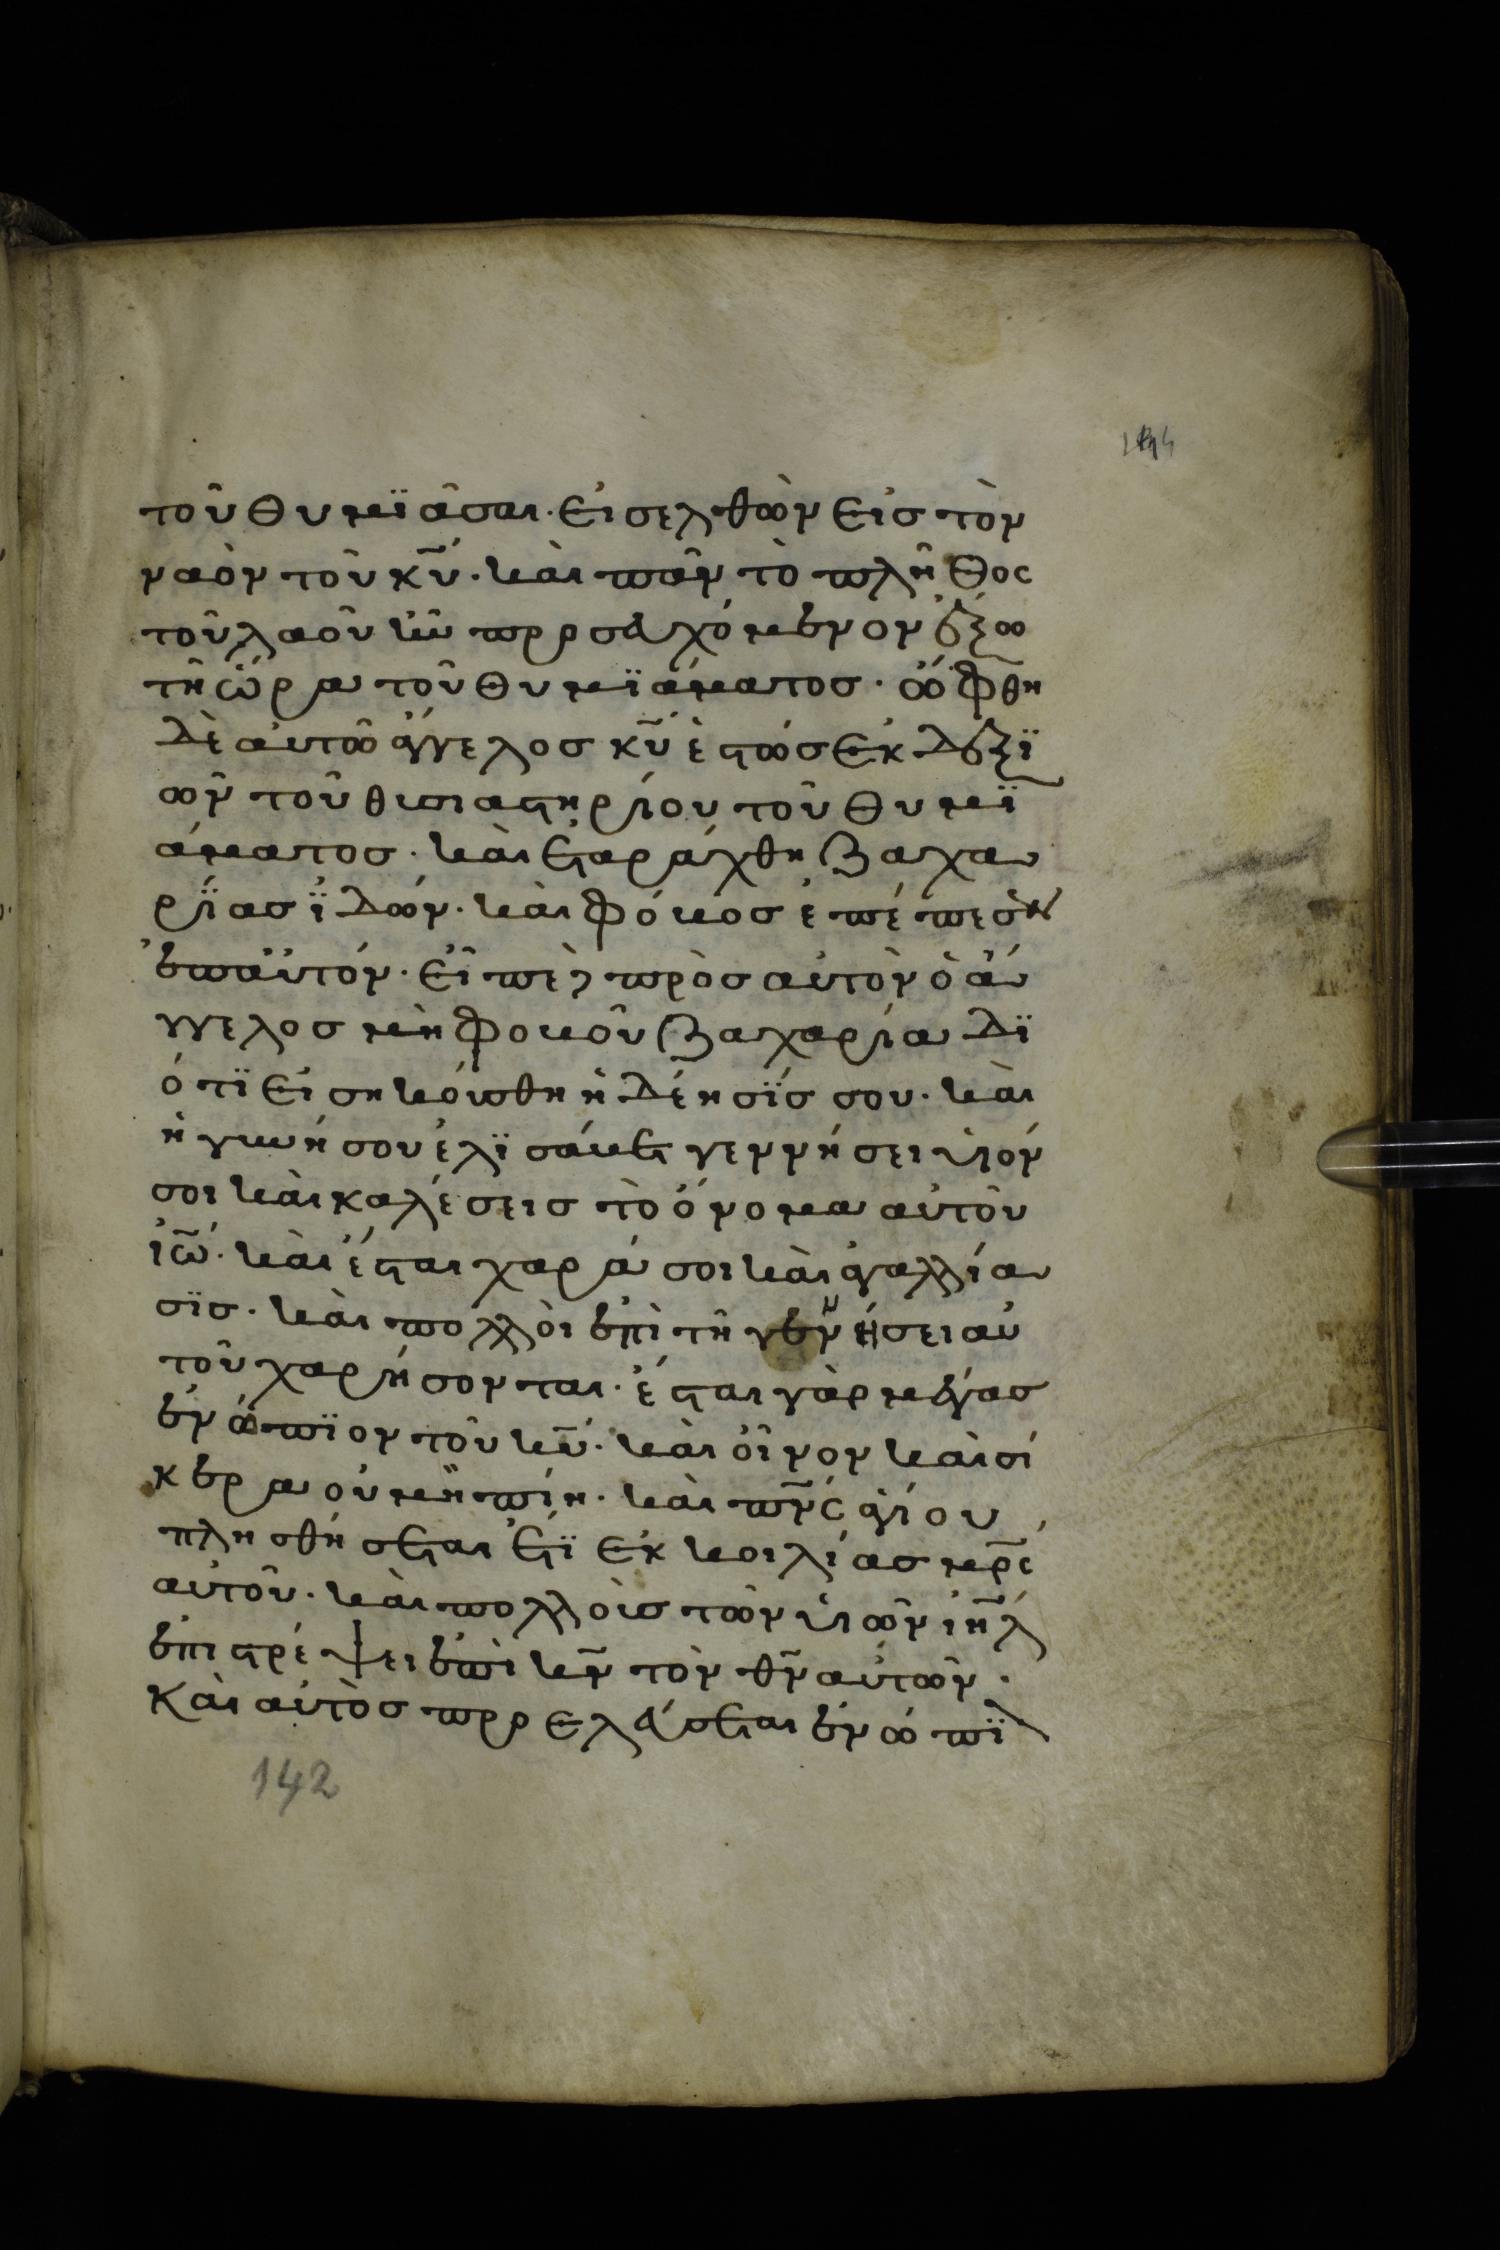 144
τοῦ θυμϊᾶσαι· εἰσελθὼν εἰς τὸν
ναὸν τοῦ κ̅υ̅· καὶ πᾶν τὸ πλῆθος
τοῦ λαοῦ ἦν προσευχόμενον ἔξω
τῆ ὥρα τοῦ θυμϊάματος· ὤφθη
δὲ αὐτῶ ἄγγελος κ̅υ̅ ἑστὼς ἐκ δεξϊ
ῶν τοῦ θυσιαστηρίου τοῦ θυμϊ
άματος· καὶ ἐταράχθη ζαχα
ρίας ἰδών· καὶ φόβος ἐπέπεσεν
ἐπ αὐτόν· εἶπε δὲ πρὸς αὐτὸν ὁ ἄ
γγελος μὴ φοβοῦ ζαχαρία δϊ
ότϊ εἰσηκούσθη ἡ δέησίς σου· καὶ
ἡ γυνή σου ἐλϊσάβετ γεννήσει υἱόν
σοι καὶ καλέσεις τὸ ὄνομα αὐτοῦ
ἰ̅ω̅· καὶ ἔσται χαρά σοι καὶ ἀγαλλία
σϊς· καὶ πολλοὶ ἐπὶ τῆ γεννήσει αὐ
τοῦ χαρήσονται· ἔσται γὰρ μέγας
ἐνώπϊον τοῦ κ̅υ̅· καὶ οἶνον καὶ σί
κερα οὐ μὴ πίη· καὶ π̅ν̅ς̅ ἁγίου
πλησθήσεται ἔτϊ ἐκ κοιλίας μ̅ρ̅ς̅
αὐτοῦ· καὶ πολλοὺς τῶν υἱῶν ἰ̅η̅λ̅
ἐπιστρέψει ἐπὶ κ̅ν̅ τὸν θ̅ν̅ αὐτῶν·
Καὶ αὐτὸς προελεύσεται ἐνώπϊ
142